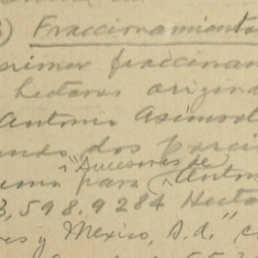 ) Fraccionamiento
primer fraccionam
hectareas origina
Antonio Asúnsol
ando dos parci
"Sucesores de
una para Anton
3,598.9284 Hecta
res y Mexico, S.A." c